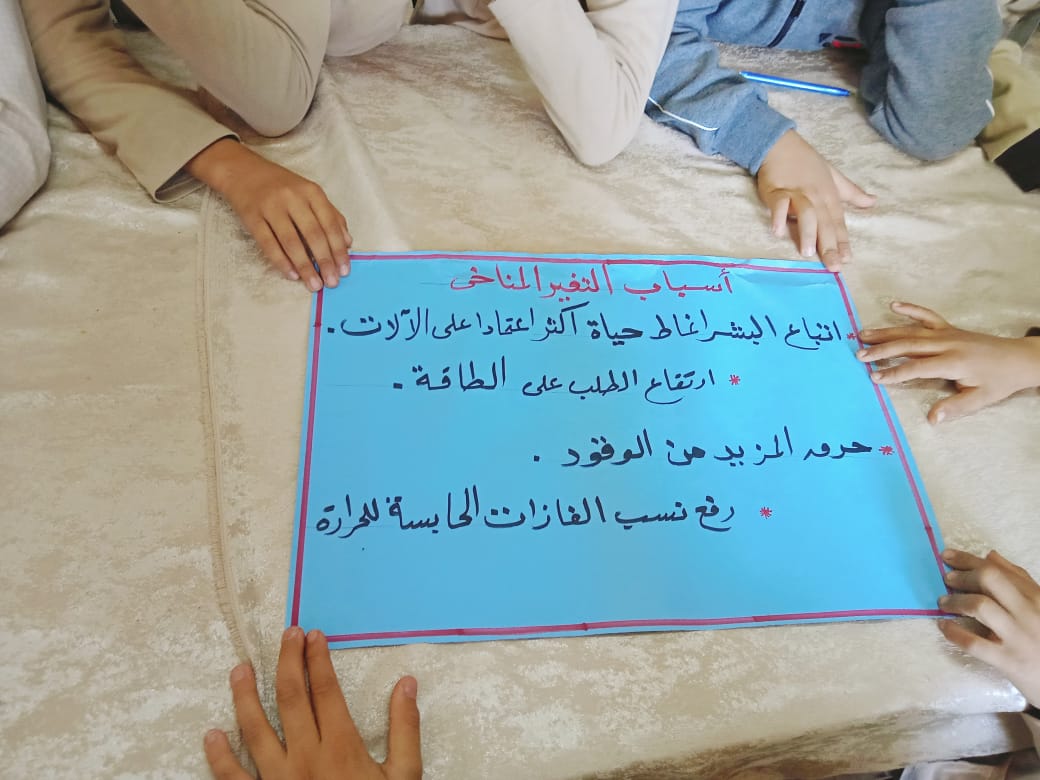 أسباب التغير المناخي
* اتباع البشر انماط حياة أكثر اعتمادا على الآلات .
* ارتفاع الطلب على الطاقة .
* حرق المزيد من الوقود .
* رفع نسب الغازات الحابسة للحرارة